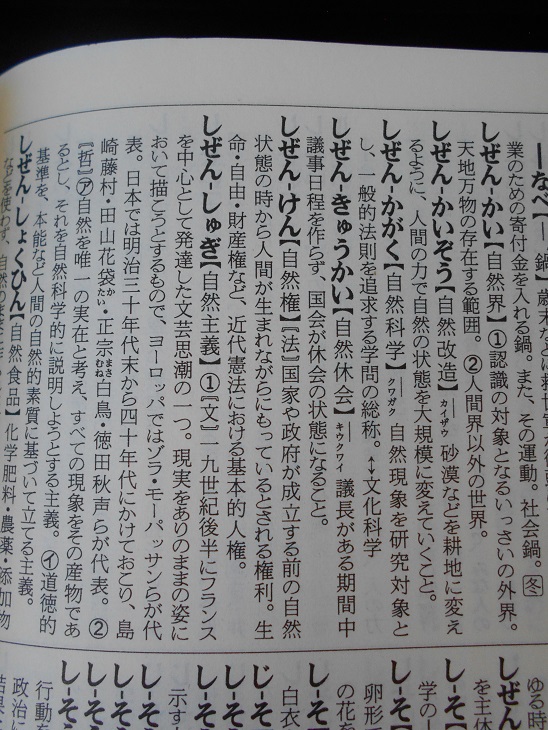 ―なべ【―鍋】
業のための寄付金を入れる鍋。また、その運動。社会鍋。冬
しぜん-かい【自然界】①認識の対象となるいっさいの外界。
天地万物の存在する範囲。②人間界以外の世界。
しぜん-かいぞう【自然改造】カイザウ 砂漠などを耕地に変え
るように、人間の力で自然の状態を大規模に変えていくこと。
しぜん-かがく【自然科学】クワガク 自然現象を研究対象と
し、一般的法則を追求する学問の総称。↔文化科学
しぜん-きゅうかい【自然休会】キウクワイ 議長がある期間中
議事日程を作らず、国会が休会の状態になること。
しぜん-けん【自然権】〘法〙国家や政府が成立する前の自然
状態の時から人間が生まれながらにもっているとされる権利。生
命・自由・財産権など、近代憲法における基本的人権。
しぜん-しゅぎ【自然主義】①〘文〙一九世紀後半にフランス
を中心として発達した文芸思潮の一つ。現実をありのままの姿に
おいて描こうとするもので、ヨーロッパではゾラ・モーパッサンらが代
表。日本では明治三十年代末から四十年代にかけておこり、島
崎藤村・田山花袋かたい・正宗まさむね白鳥・徳田秋声らが代表。②
〘哲〙㋐自然を唯一の実在と考え、すべての現象をその産物であ
るとし、それを自然科学的に説明しようとする主義。㋑道徳的
基準を、本能など人間の自然的素質に基づいて立てる主義。
しぜん-しょくひん【自然食品】化学肥料・農薬・添加物
などを使わず、自然のままに
ゆる時
を主体
しぜん
学の一
し-そ【
卵形
の花を
し-そ【
白衣
じ-そ
し-そ
し-そ
示す
し-そ
し-そ
し-そう
行動を
政治に
結果